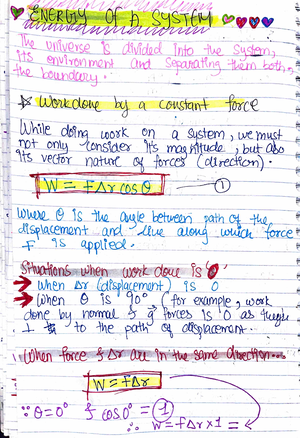 ENERGY OF A SYSTEM
The universe is divided Into the System,
Its environment and Separating them both,
the boundary.
Work done by a constant force
While doing work on a system, we must
not only consider its magnitude, but also
its vector nature of forces (direction).
W = FΔr cos θ ①
Where θ is the angle between path of the
displacement and line along which force
F is applied.
Situations when work done is '0'
→ When Δr (displacement) is 0
→ When θ is 90° (for example, work
done by normal & g forces is 0 as they're
⊥ to the path of displacement.
When force & Δr are in the same direction...
W = FΔr
∵ θ = 0° & cos 0° = ①
∴ W = FΔr × 1 =